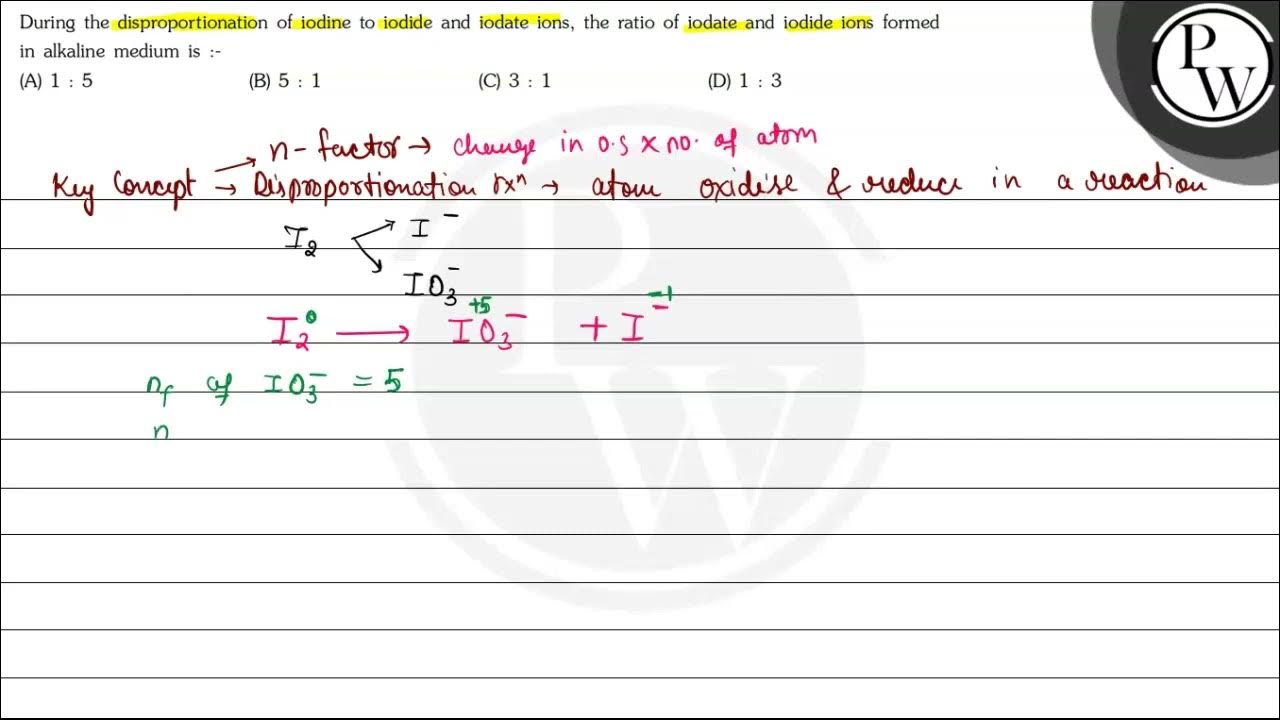 During the disproportionation of iodine to iodide and iodate ions, the ratio of iodate and iodide ions formed
in alkaline medium is :-
(A) 1 : 5 (B) 5 : 1 (C) 3 : 1 (D) 1 : 3
P
W
n-factor → change in o.s x no. of atom
Key Concept → Disproportionation rxⁿ → atom oxidise & reduce in a reaction
I₂ I⁻
IO₃⁻
I₂⁰ → I⁺⁵O₃⁻ + I⁻ -1
n_f of IO₃⁻ = 5
n